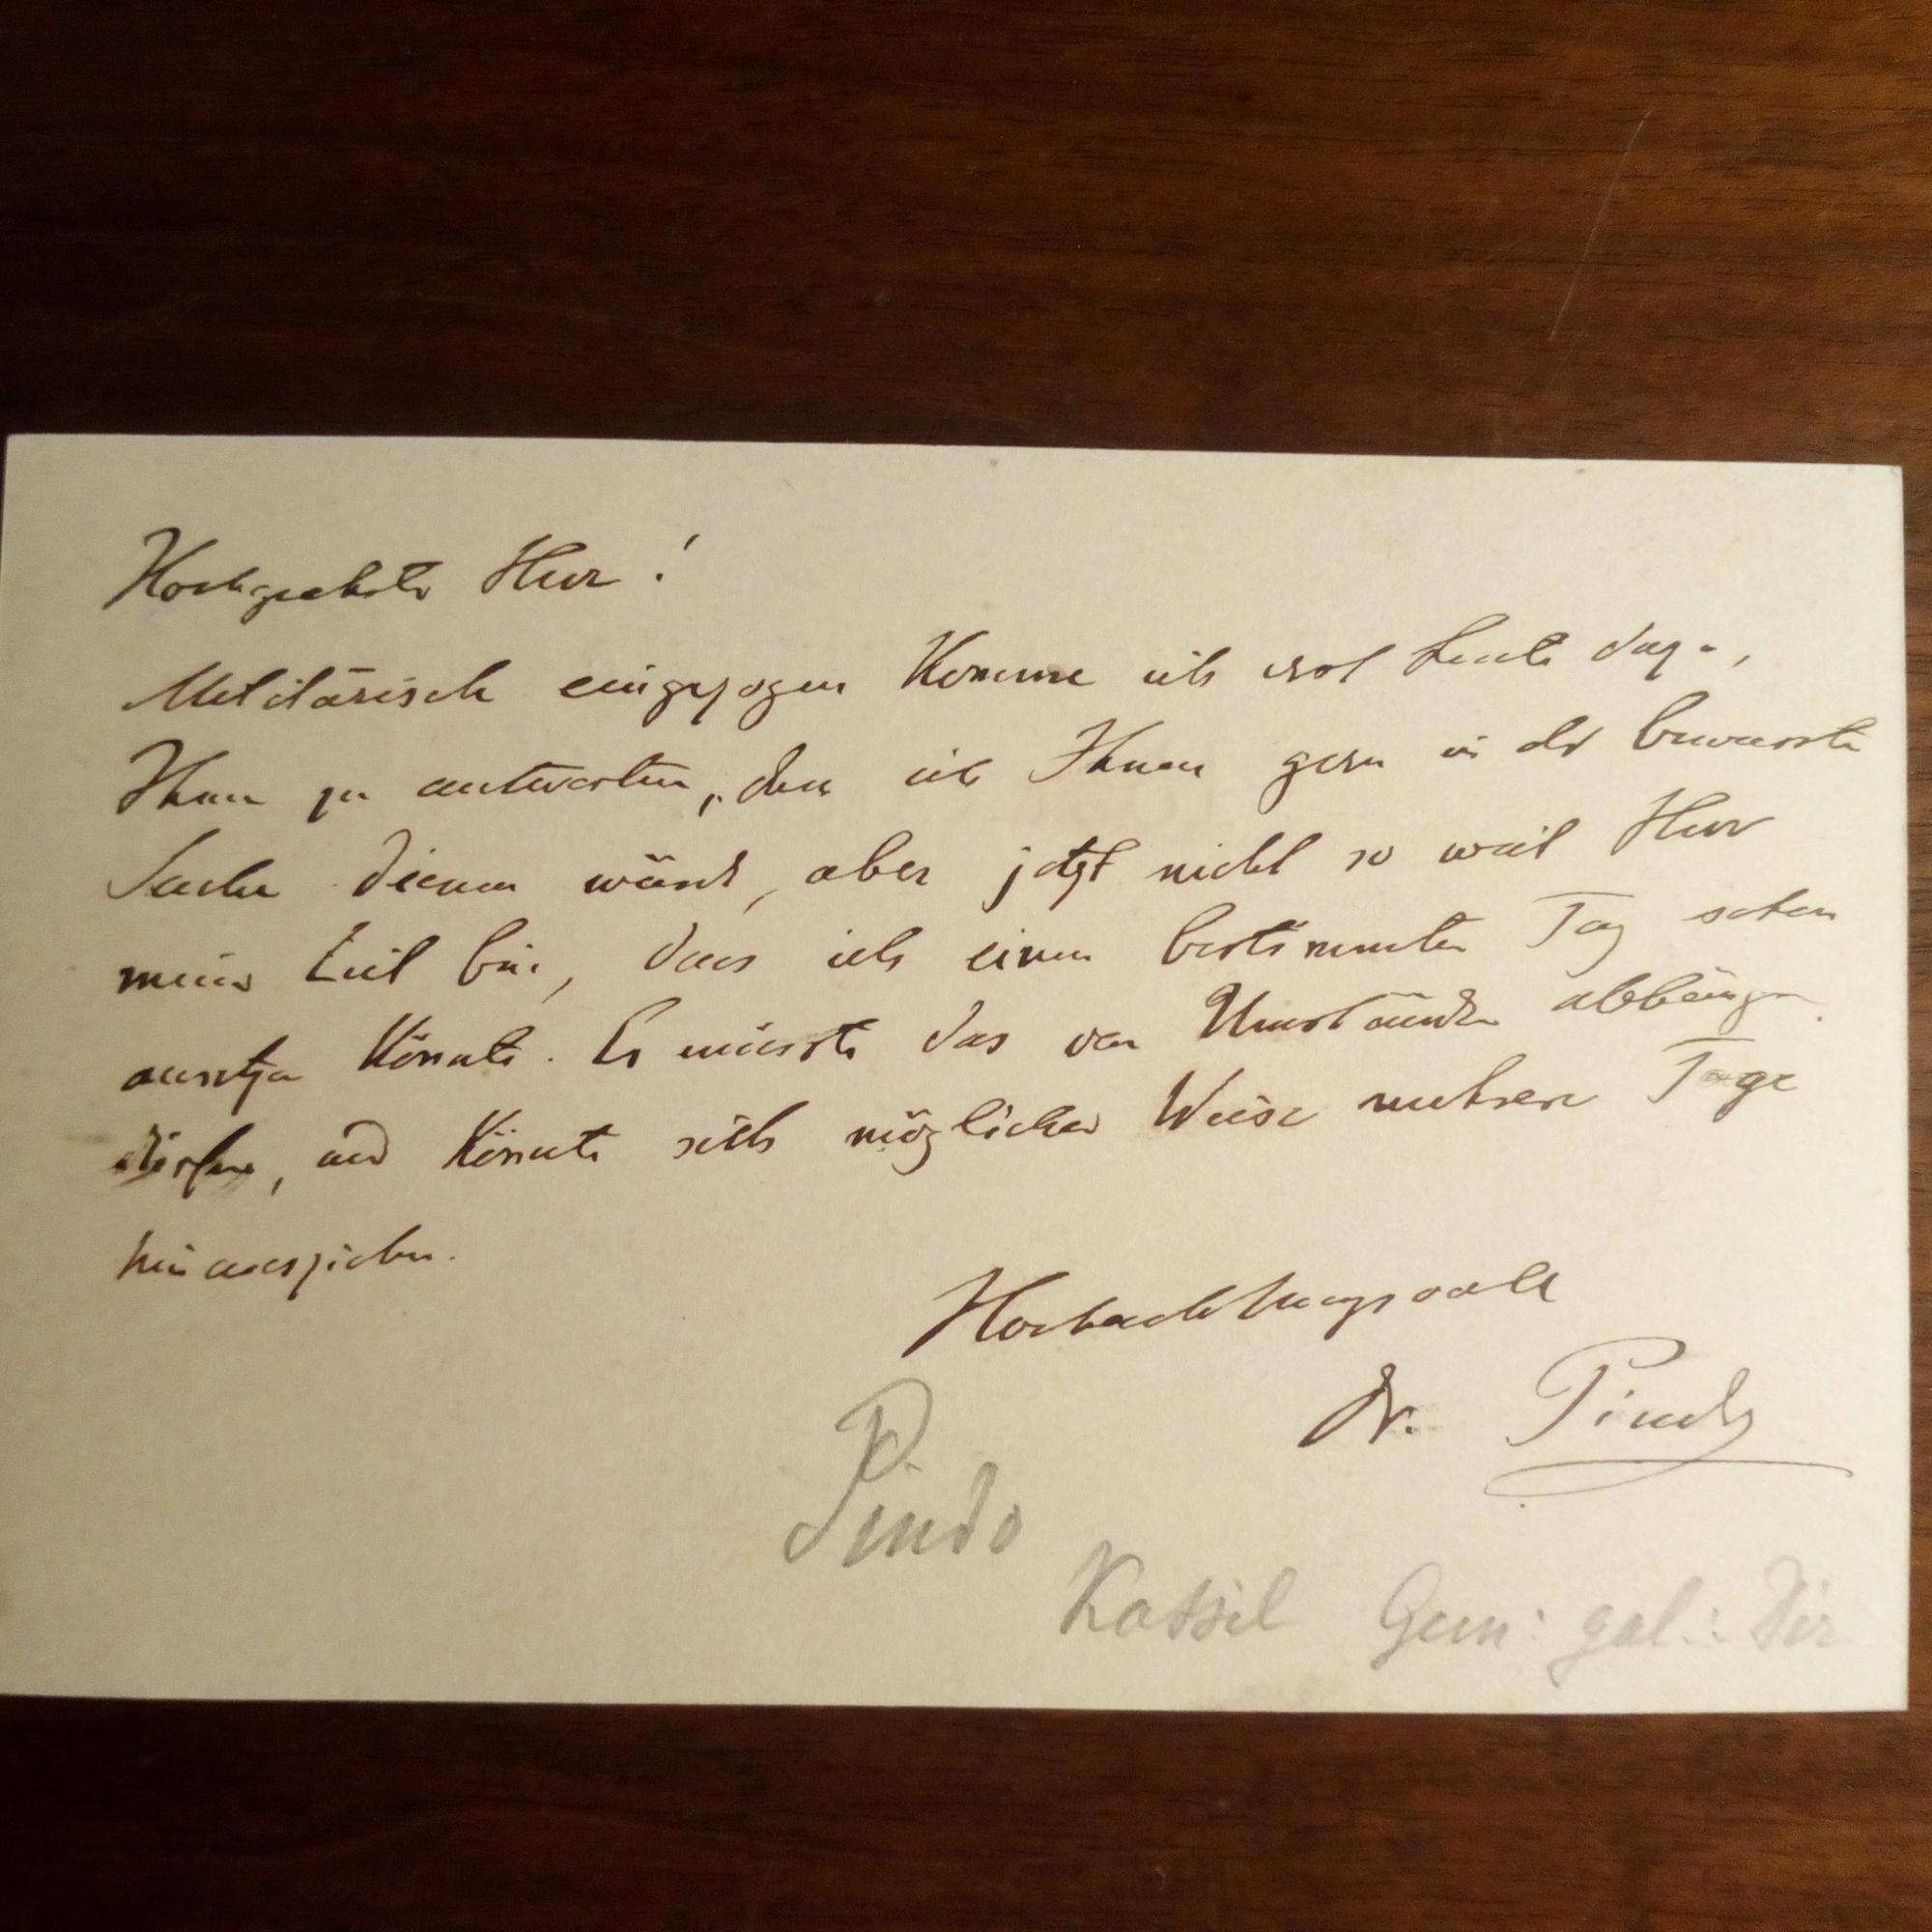 Hochgeehrter Herr!
Militärisch eingezogen komme ich erst heute dazu,
Ihnen zu antworten, dem ich Ihnen gern in der bewussten
Sache dienen würde, aber jetzt nicht so weit Herr
meiner Zeit bin, dass ich einen bestimmten Tag schon
ansetzen könnte. Es müsste das von Umständen abhängen
dürfen, und könnte sich möglicher Weise mehrere Tage
hinausziehen.
Hochachtungsvoll
Dr.
Kassel Gem: gal: Dir